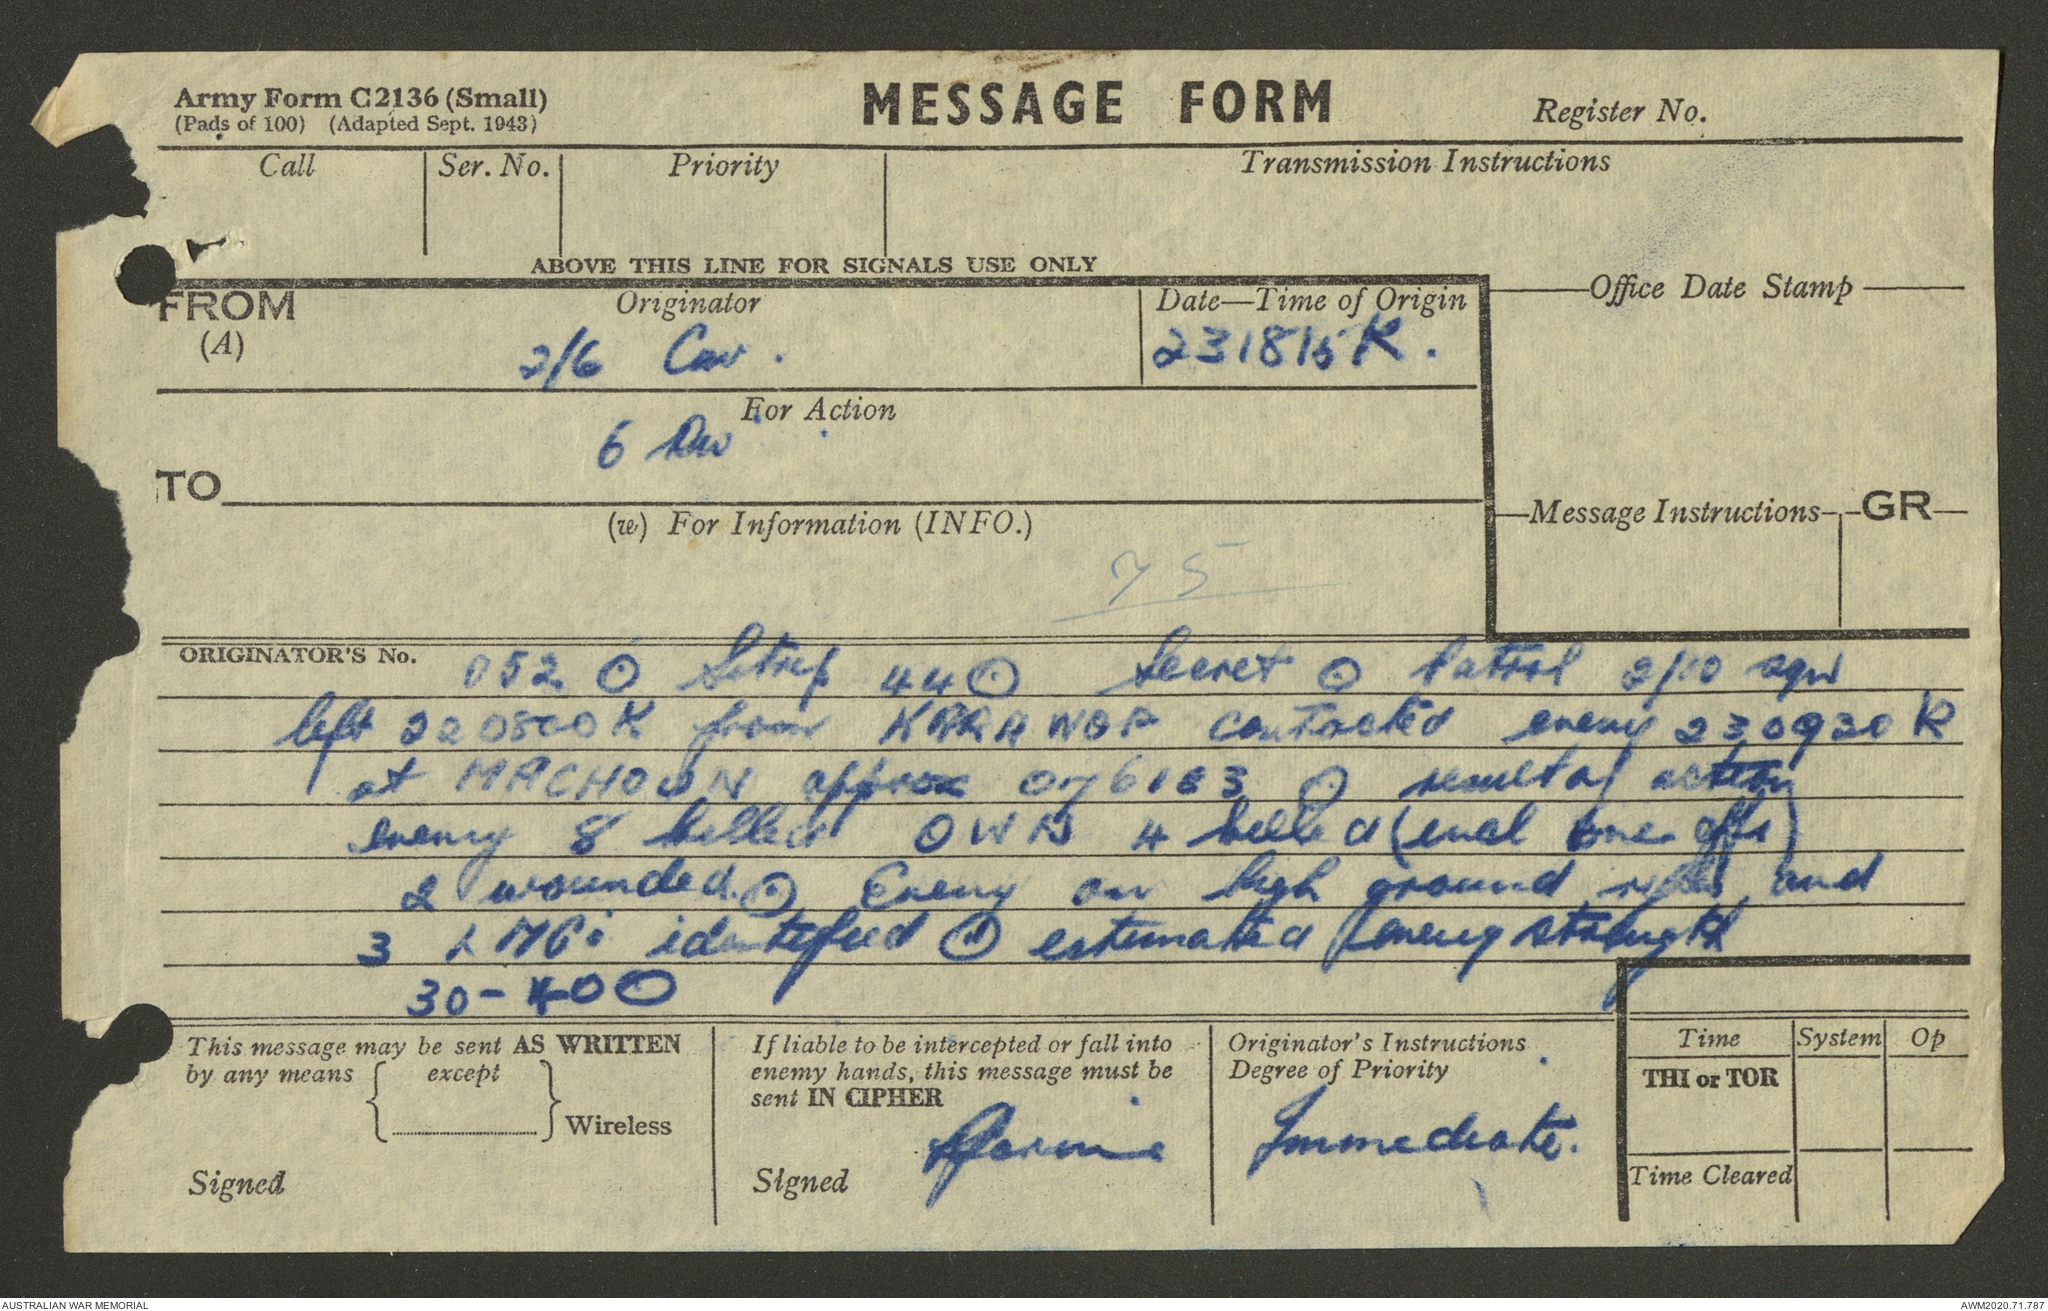 Army Form C2136 (Small)
(Pads of 100) (Adapted Sept. 1943)
MESSAGE FORM
Register No.
Call
Ser. No.
Priority
Transmission Instructions
ABOVE THIS LINE FOR SIGNALS USE ONLY
FROM
(A)
Originator
2/6 Cav.
Date—Time of Origin
231815K.
Office Date Stamp
For Action
6 Div
TO
(w) For Information (INFO.)
75
Message Instructions
GR
ORIGINATOR'S No.
052 ⊙ Sitrep 44 ⊙ Secret ⊙ Patrol 2/10 sqn
left 220800K from contacted enemy 230920K
at approx 076183 ⊙ result of action
enemy 8 killed OWN 4 killed (incl one offr)
2 wounded ⊙ Enemy on high ground rifles and
3 LMGs identified ⊙ estimated enemy strength
30-40 ⊙
This message may be sent AS WRITTEN
by any means { except } Wireless
Signed
If liable to be intercepted or fall into
enemy hands, this message must be
sent IN CIPHER
Signed
Originator's Instructions
Degree of Priority
Immediate.
Time
System
Op
THI or TOR
Time Cleared
AUSTRALIAN WAR MEMORIAL
AWM2020.71.787